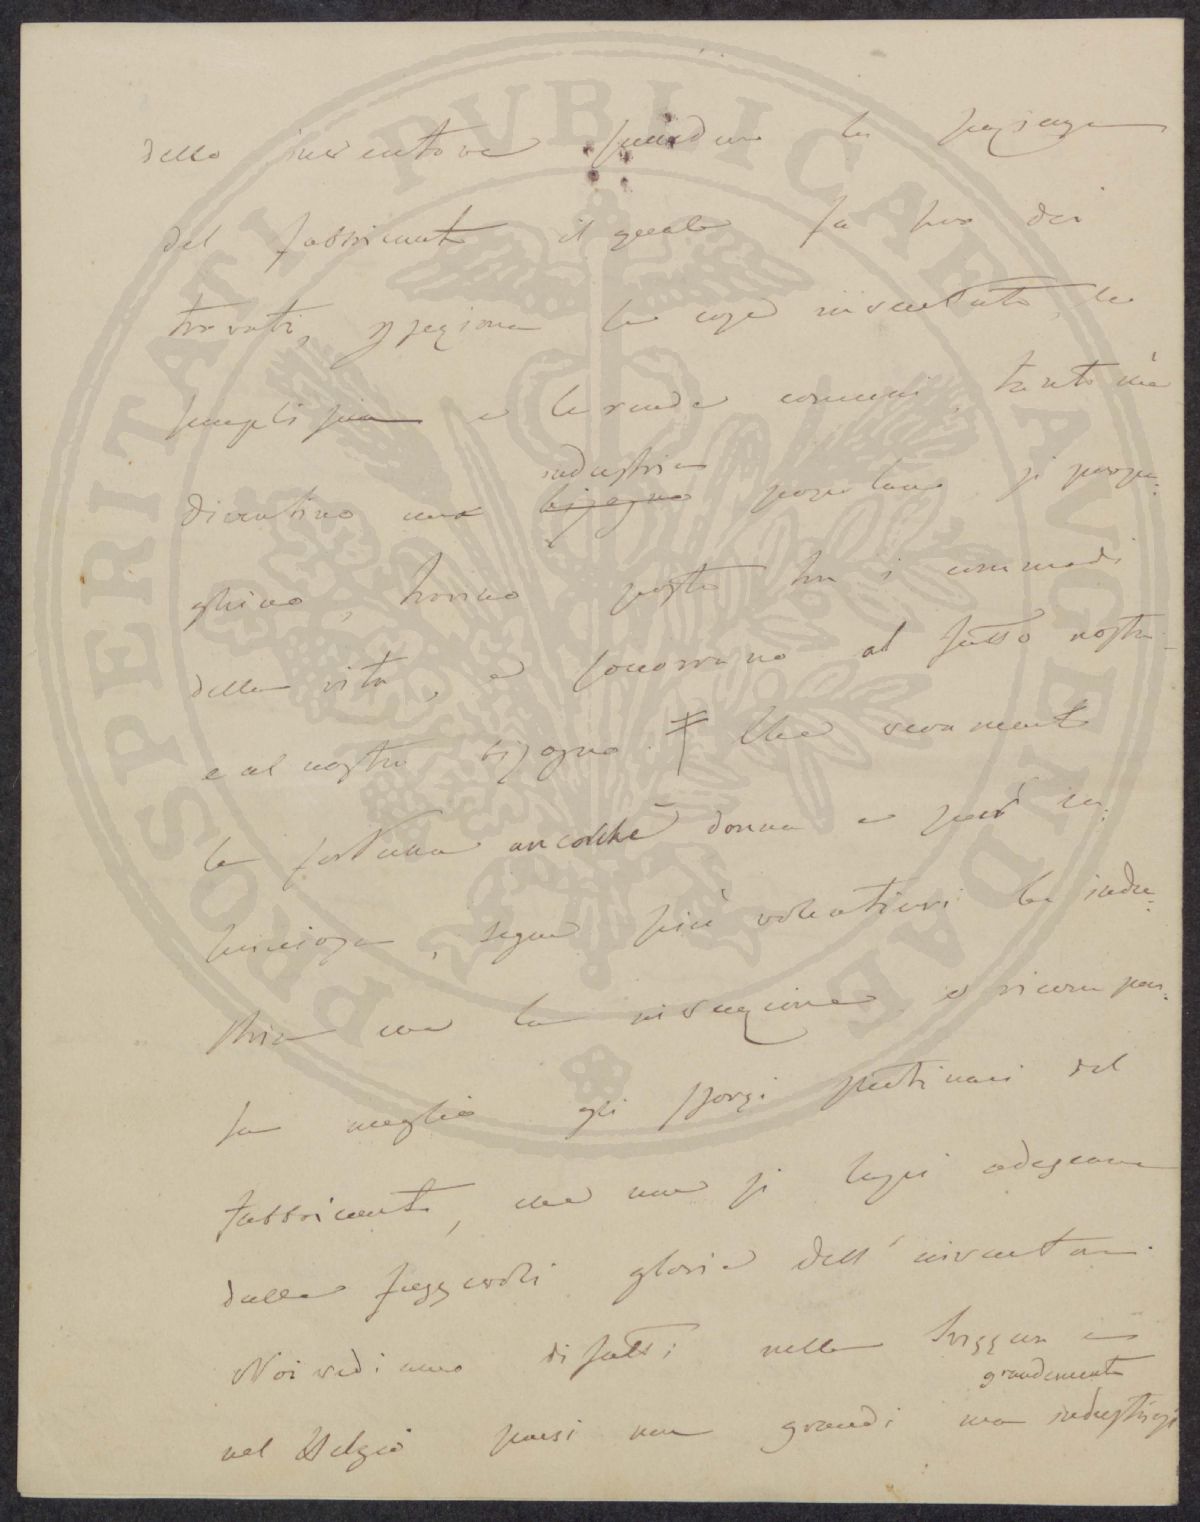 dello inventore la pazienza
del fabbricante il quale fa suo dei
trovati, le cose inventate, le
semplifica e le rende comuni, tanto che
diventino una industria
bisogno popolare, si propa-
ghino, trovino posto tra i commodi
della vita, e soccorrano al fasto nostro
e al nostro bisogno. Che veramente
la fortuna ancorché donna e però ca-
pricciosa, segue più volentieri la indu-
stria che la invenzione e ricompen-
sa meglio gli sforzi del
fabbricante, che non si lasci adescare
dalle fuggevoli glorie dell'inventare.
Noi vediamo difatti nella Svizzera e
grandemente
nel Belgio paesi non grandi ma industriosi
PROSPERITATI PVBLICAE AVGENDAE